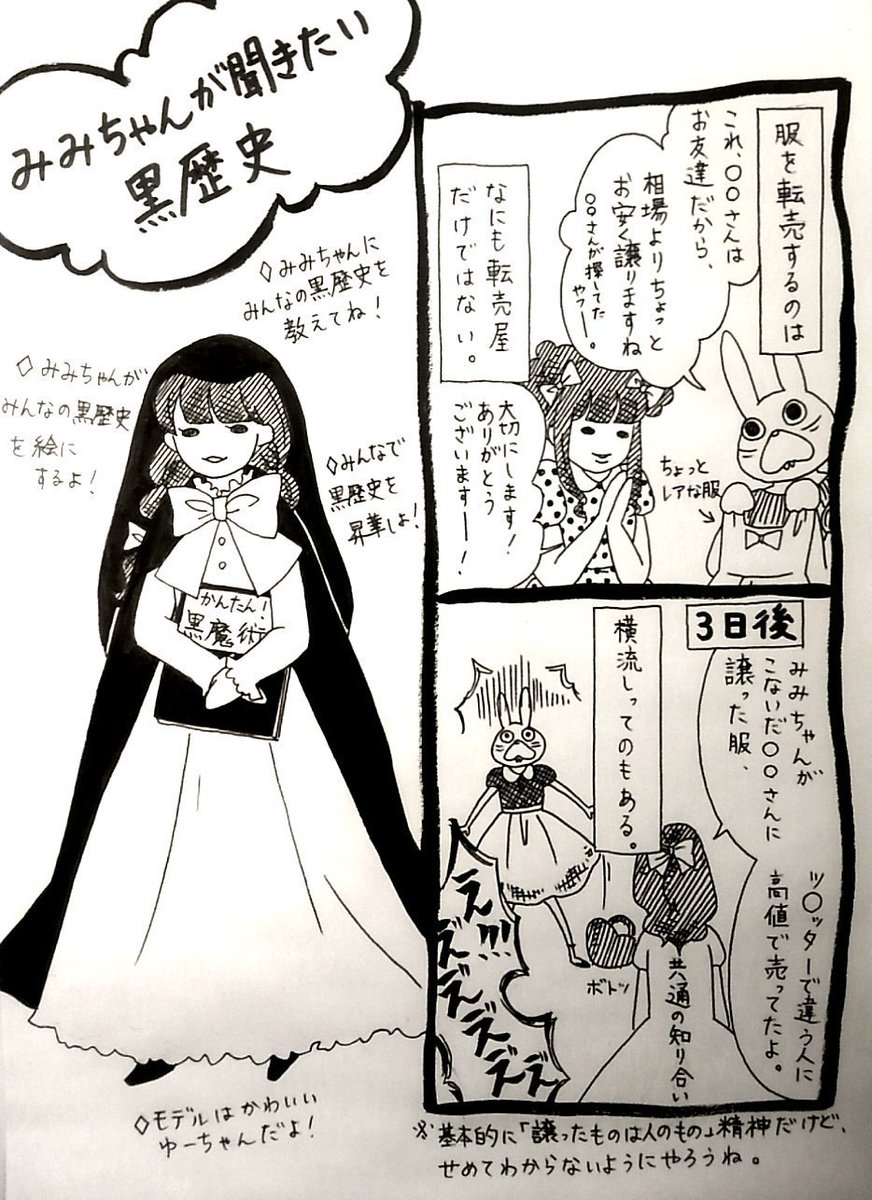 みみちゃんが聞きたい
黒歴史
◇みみちゃんに
みんなの黒歴史を
教えてね!
◇みみちゃんが
みんなの黒歴史
を絵に
するよ!
◇みんなで
黒歴史を
昇華しよ!
かんたん!
黒魔術
◇モデルはかわいい
ゆーちゃんだよ!
服を転売するのは
これ、〇〇さんは
お友達だから、
相場よりちょっと
お安く譲りますね
〇〇さんが探してた
やつー。
なにも転売屋
だけではない。
大切にします!
ありがとう
ございますー!
ちょっと
レアな服
3日後
みみちゃんが
こないだ〇〇さんに
譲った服、
ツ〇ッターで違う人に
高値で売ってたよ。
横流しってのもある。
えぇ!!!
ぇ゛ぇ゛ぇ゛ぇ゛ぇ゛
ボトッ
共通の知り合い
※基本的に「譲ったものは人のもの」精神だけど、
せめてわからないようにやろうね。